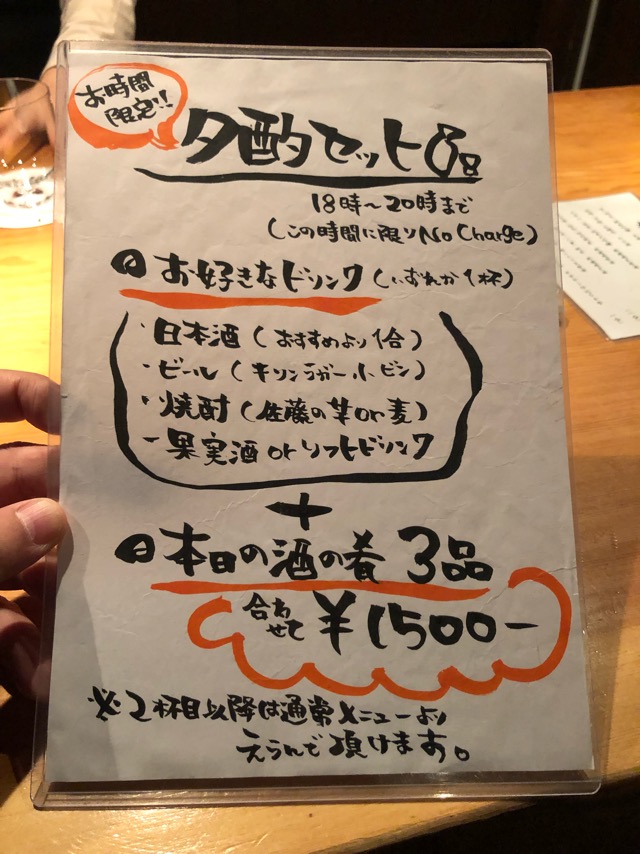 お時間
限定!!
夕酌セット
18時〜20時まで
(この時間に限りNo Charge)
お好きなドリンク(いずれか1杯)
・日本酒(おすすめより1合)
・ビール(キリンラガー小ビン)
・焼酎(佐藤の芋or麦)
・果実酒orソフトドリンク
+
本日の酒の肴 3品
合わせて ¥1500-
※2杯目以降は通常メニューより
えらんで頂けます。